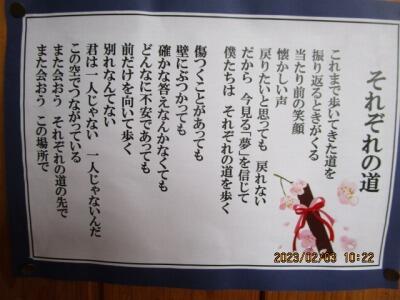 それぞれの道
これまで歩いてきた道を
振り返るときがくる
当たり前の笑顔
懐かしい声
戻りたいと思っても 戻れない
だから 今見る「夢」を信じて
僕たちは それぞれの道を歩く
傷つくことがあっても
壁にぶつかっても
確かな答えなんかなくても
どんなに不安であっても
前だけを向いて歩く
別れなんてない
君は一人じゃない 一人じゃないんだ
この空でつながっている
また会おう それぞれの道の先で
また会おう この場所で
2023/02/03 10:22